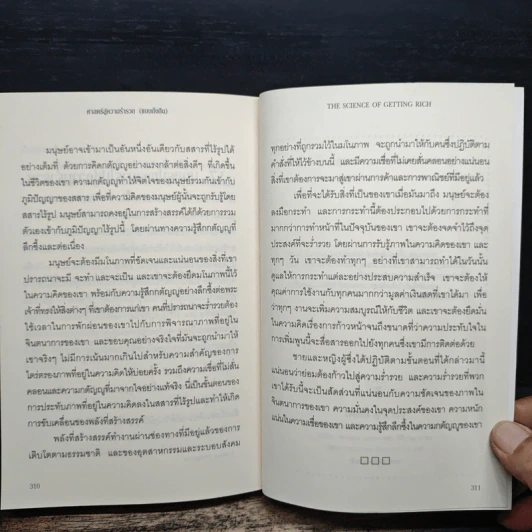 ศาสตร์สู่ความร่ำรวย (ฉบับยั่งยืน)
มนุษย์อาจเข้ามาเป็นอันหนึ่งอันเดียวกับสสารที่ไร้รูปได้
อย่างเต็มที่ ด้วยการคิดกตัญญูอย่างแรงกล้าต่อสิ่งดีๆ ที่เกิดขึ้น
ในชีวิตของเขา ความกตัญญูทำให้จิตใจของมนุษย์รวมกันเข้ากับ
ภูมิปัญญาของสสาร เพื่อที่ความคิดของมนุษย์ผู้นั้นจะถูกรับรู้โดย
สสารไร้รูป มนุษย์สามารถคงอยู่ในการสร้างสรรค์ได้ก็ด้วยการรวม
ตัวเองเข้ากับภูมิปัญญาไร้รูปนี้ โดยผ่านทางความรู้สึกกตัญญูที่
ลึกซึ้งและต่อเนื่อง
มนุษย์จะต้องมีมโนภาพที่ชัดเจนและแน่นอนของสิ่งที่เขา
ปรารถนาจะมี จะทำ และจะเป็น และเขาจะต้องยึดมโนภาพนี้ไว้
ในความคิดของเขา พร้อมกับความรู้สึกกตัญญูอย่างลึกซึ้งต่อพระ
เจ้าที่ทรงให้สิ่งต่างๆ ที่เขาต้องการแก่เขา คนที่ปรารถนาจะร่ำรวยต้อง
ใช้เวลาในการพักผ่อนของเขาไปกับการพิจารณาภาพที่อยู่ใน
จินตนาการของเขา และขอบคุณอย่างจริงใจที่มันจะถูกนำมาให้
เขาจริงๆ ไม่มีการเน้นมากเกินไปสำหรับความสำคัญของการ
ไตร่ตรองภาพที่อยู่ในความคิดให้บ่อยครั้ง รวมถึงความเชื่อที่ไม่สั่น
คลอนและความกตัญญูที่มาจากใจอย่างแท้จริง นี่เป็นขั้นตอนของ
การประทับภาพที่อยู่ในความคิดลงในสสารที่ไร้รูปและทำให้เกิด
การขับเคลื่อนของพลังที่สร้างสรรค์
พลังที่สร้างสรรค์ทำงานผ่านช่องทางที่มีอยู่แล้วของการ
เติบโตตามธรรมชาติ และของอุตสาหกรรมและระบอบสังคม
310
THE SCIENCE OF GETTING RICH
ทุกอย่างที่ถูกรวมไว้ในมโนภาพ จะถูกนำมาให้กับคนซึ่งปฏิบัติตาม
คำสั่งที่ให้ไว้ข้างบนนี้ และมีความเชื่อที่ไม่เคยสั่นคลอนอย่างแน่นอน
สิ่งที่เขาต้องการจะมาสู่เขาผ่านการค้าและการพาณิชย์ที่มีอยู่แล้ว
เพื่อที่จะได้รับสิ่งที่เป็นของเขาเมื่อมันมาถึง มนุษย์จะต้อง
ลงมือกระทำ และการกระทำนี้ต้องประกอบไปด้วยการกระทำที่
มากกว่าการทำหน้าที่ในปัจจุบันของเขา เขาจะต้องจดจำไว้ถึงจุด
ประสงค์ที่จะร่ำรวย โดยผ่านการรับรู้ภาพในความคิดของเขา และ
ทุกๆ วัน เขาจะต้องทำทุกๆ อย่างที่เขาสามารถทำได้ในวันนั้น
ดูแลให้การกระทำแต่ละอย่างประสบความสำเร็จ เขาจะต้องให้
คุณค่าการใช้งานกับทุกคนมากกว่ามูลค่าเงินสดที่เขาได้มา เพื่อ
ว่าทุกๆ งานจะเพิ่มความสมบูรณ์ให้กับชีวิต และเขาจะต้องยึดมั่น
ในความคิดเรื่องการก้าวหน้าจนถึงขนาดที่ว่าความประทับใจใน
การเพิ่มพูนนี้จะสื่อสารออกไปยังทุกคนซึ่งเขามีการติดต่อด้วย
ชายและหญิงผู้ซึ่งได้ปฏิบัติตามขั้นตอนที่ได้กล่าวมานี้
แน่นอนว่าย่อมต้องก้าวไปสู่ความร่ำรวย และความร่ำรวยที่พวก
เขาได้รับนี้จะเป็นสัดส่วนที่แน่นอนกับความชัดเจนของภาพใน
จินตนาการของเขา ความมั่นคงในจุดประสงค์ของเขา ความหนัก
แน่นในความเชื่อของเขา และความรู้สึกลึกซึ้งในความกตัญญูของเขา
311